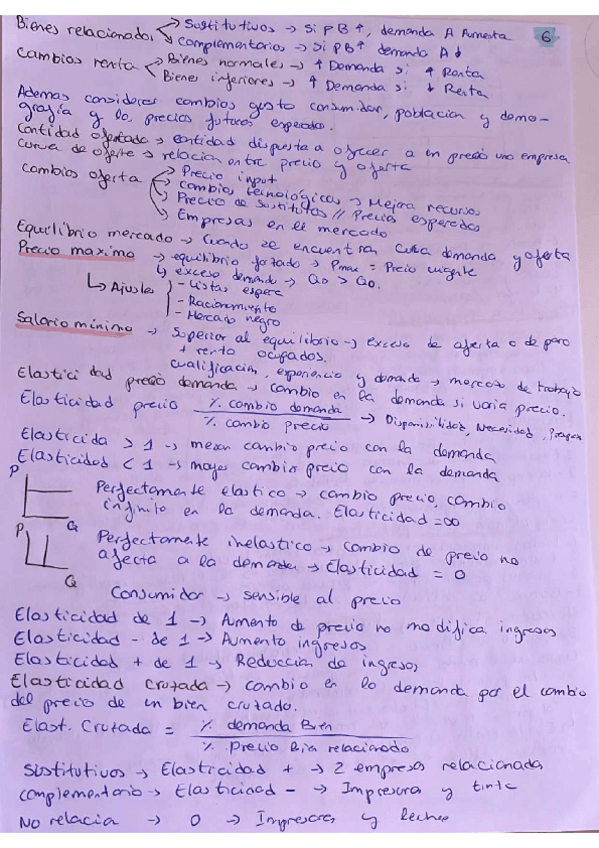 Bienes relacionados → Sustitutivos → Si PB↑, demanda A Aumenta
→ complementarios → Si PB↑ demanda A↓
6
Cambios renta → Bienes normales → ↑ Demanda si ↑ Renta
→ Bienes inferiores → ↑ Demanda si ↓ Renta
Ademas considerar cambios gusto consumidor, población y demo-
grafía y los precios futuros esperados.
Cantidad ofertada → cantidad dispuesta a ofrecer a un precio una empresa
Curva de oferta → relación entre precio y oferta
Cambios oferta → Precio input
→ Cambios tecnológicos → Mejora recursos
→ Precio de Sustitutos // Precios esperados
→ Empresas en el mercado
Equilibrio mercado → Cuando se encuentran curva demanda y oferta
Precio maximo → equilibrio forzado → Pmax = Precio vigente
↳ exceso demanda → QD > QO.
↳ Ajustes - Listas espera
- Racionamiento
- Mercado negro
Salario mínimo → Superior al equilibrio → exceso de oferta o de paro
+ renta ocupados.
cualificación, experiencia y demanda → mercado de trabajo
Elasticidad precio demanda → cambio en la demanda si varia precio.
Elasticidad precio % cambio demanda / % cambio precio → Disponibilidad, Necesidad,
Elasticidad > 1 → menor cambio precio con la demanda
Elasticidad < 1 → mayor cambio precio con la demanda
P
Q
Perfectamente elastico → cambio precio, cambio
infinito en la demanda. Elasticidad = ∞
P
Q
Perfectamente inelastico → cambio de precio no
afecta a la demanda → Elasticidad = 0
Consumidor → sensible al precio
Elasticidad de 1 → Aumento de precio no modifica ingresos
Elasticidad - de 1 → Aumento ingresos
Elasticidad + de 1 → Reducción de ingresos
Elasticidad Cruzada → cambio en la demanda por el cambio
del precio de un bien cruzado.
Elast. Cruzada = % demanda Bien / % Precio bien relacionado
Sustitutivos → Elasticidad + → 2 empresas relacionada
complementario → Elasticidad - → Impresora y tinta
No relacia → 0 → Impresoras y leches